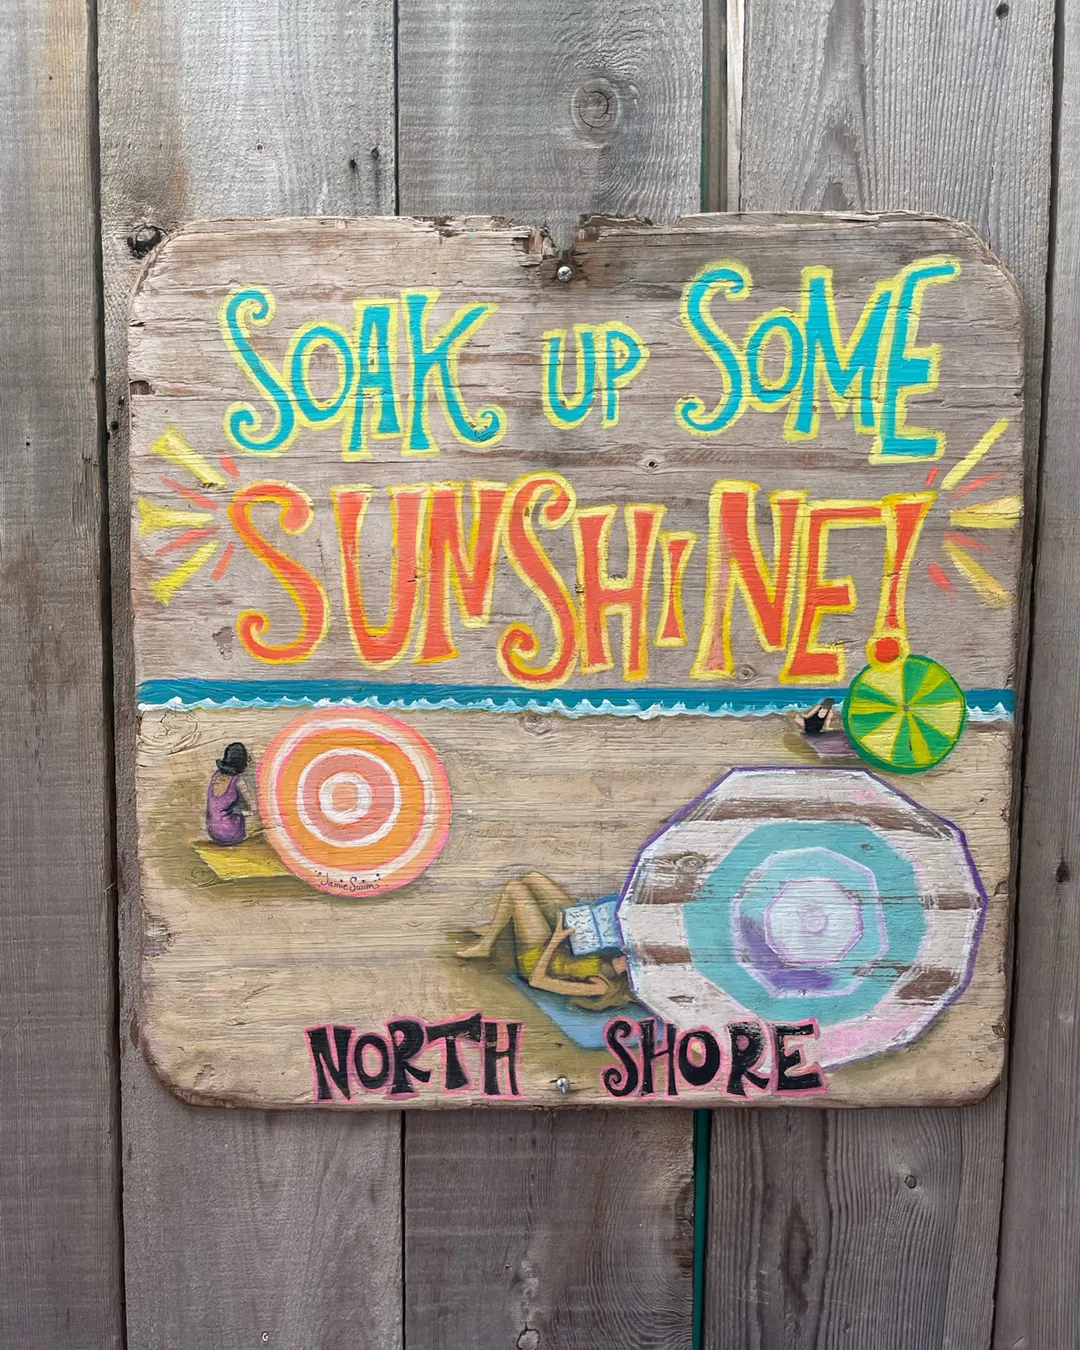 SOAK UP SOME
SUNSHiNE!
Jamie Swim
NORTH SHORE